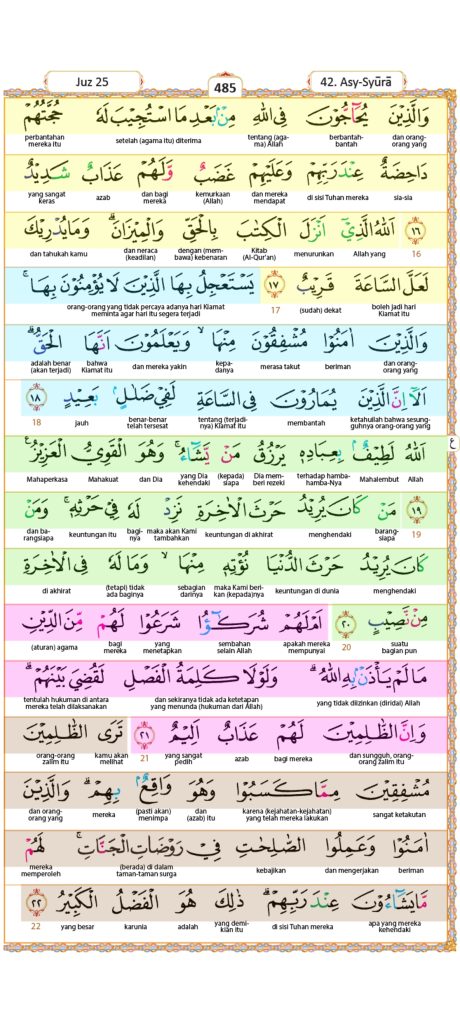 Juz 25
485
42. Asy-Syūrā
وَالَّذِيْنَ يُحَاۤجُّوْنَ فِى اللّٰهِ مِنْۢ بَعْدِ مَا اسْتُجِيْبَ لَهٗ حُجَّتُهُمْ
dan orang-orang yang berbantah-bantah tentang (agama) Allah setelah (agama itu) diterima perbantahan mereka itu
دَاحِضَةٌ عِنْدَ رَبِّهِمْ وَعَلَيْهِمْ غَضَبٌ وَّلَهُمْ عَذَابٌ شَدِيْدٌ
sia-sia di sisi Tuhan mereka dan mereka mendapat kemurkaan (Allah) dan bagi mereka azab yang sangat keras
١٦ اَللّٰهُ الَّذِيْٓ اَنْزَلَ الْكِتٰبَ بِالْحَقِّ وَالْمِيْزَانَ ۗ وَمَا يُدْرِيْكَ
16 Allah yang menurunkan Kitab (Al-Qur'an) dengan (membawa) kebenaran dan neraca (keadilan) dan tahukah kamu
لَعَلَّ السَّاعَةَ قَرِيْبٌ ١٧ يَسْتَعْجِلُ بِهَا الَّذِيْنَ لَا يُؤْمِنُوْنَ بِهَا ۚ
boleh jadi hari Kiamat (sudah) dekat 17 orang-orang yang tidak percaya adanya hari Kiamat meminta agar hari itu segera terjadi
وَالَّذِيْنَ اٰمَنُوْا مُشْفِقُوْنَ مِنْهَا ۙ وَيَعْلَمُوْنَ اَنَّهَا الْحَقُّ ۗ
dan orang-orang yang beriman merasa takut kepadanya dan mereka yakin bahwa Kiamat itu adalah benar (akan terjadi)
اَلَآ اِنَّ الَّذِيْنَ يُمَارُوْنَ فِى السَّاعَةِ لَفِيْ ضَلٰلٍۢ بَعِيْدٍ ١٨
ketahuilah bahwa sesungguhnya orang-orang yang membantah tentang (terjadinya) Kiamat itu benar-benar telah tersesat jauh 18
اَللّٰهُ لَطِيْفٌۢ بِعِبَادِهٖ يَرْزُقُ مَنْ يَّشَاۤءُ ۚ وَهُوَ الْقَوِيُّ الْعَزِيْزُ ࣖ
ع
Allah Mahalembut terhadap hamba-hamba-Nya Dia memberi rezeki (kepada) siapa yang Dia kehendaki dan Dia Mahakuat Mahaperkasa
١٩ مَنْ كَانَ يُرِيْدُ حَرْثَ الْاٰخِرَةِ نَزِدْ لَهٗ فِيْ حَرْثِهٖ ۚ وَمَنْ
19 barangsiapa menghendaki keuntungan di akhirat maka akan Kami tambahkan baginya keuntungan itu dan barangsiapa
كَانَ يُرِيْدُ حَرْثَ الدُّنْيَا نُؤْتِهٖ مِنْهَا ۙ وَمَا لَهٗ فِى الْاٰخِرَةِ
menghendaki keuntungan di dunia maka Kami berikan (kepada)nya sebagian darinya (tetapi) tidak ada baginya di akhirat
مِنْ نَّصِيْبٍ ٢٠ اَمْ لَهُمْ شُرَكٰۤؤُا شَرَعُوْا لَهُمْ مِّنَ الدِّيْنِ
suatu bagian pun 20 apakah mereka mempunyai sembahan selain Allah yang menetapkan bagi mereka (aturan) agama
مَا لَمْ يَأْذَنْۢ بِهِ اللّٰهُ ۗ وَلَوْلَا كَلِمَةُ الْفَصْلِ لَقُضِيَ بَيْنَهُمْ ۗ
yang tidak diizinkan (diridai) Allah dan sekiranya tidak ada ketetapan yang menunda (hukuman dari Allah) tentulah hukuman di antara mereka telah dilaksanakan
وَاِنَّ الظّٰلِمِيْنَ لَهُمْ عَذَابٌ اَلِيْمٌ ٢١ تَرَى الظّٰلِمِيْنَ
dan sungguh, orang-orang zalim itu bagi mereka azab yang sangat pedih 21 kamu akan melihat orang-orang zalim itu
مُشْفِقِيْنَ مِمَّا كَسَبُوْا وَهُوَ وَاقِعٌۢ بِهِمْ ۗ وَالَّذِيْنَ
sangat ketakutan karena (kejahatan-kejahatan) yang telah mereka lakukan dan (azab) itu (pasti akan) menimpa mereka dan orang-orang yang
اٰمَنُوْا وَعَمِلُوا الصّٰلِحٰتِ فِيْ رَوْضَاتِ الْجَنّٰتِ ۚ لَهُمْ
beriman dan mengerjakan kebajikan (berada) di dalam taman-taman surga mereka memperoleh
مَّا يَشَاۤءُوْنَ عِنْدَ رَبِّهِمْ ۗ ذٰلِكَ هُوَ الْفَضْلُ الْكَبِيْرُ ٢٢
apa yang mereka kehendaki di sisi Tuhan mereka yang demikian itu adalah karunia yang besar 22